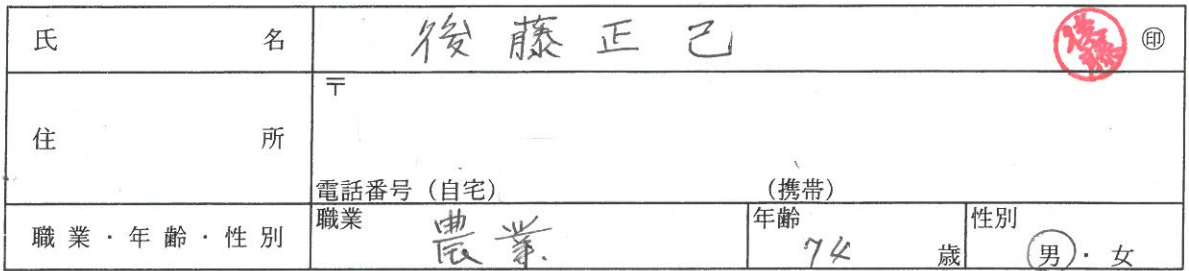 氏名 後藤正己 後藤 ㊞
住所 〒
電話番号（自宅） （携帯）
職業・年齢・性別 職業 農業 年齢 74 歳 性別 男・女